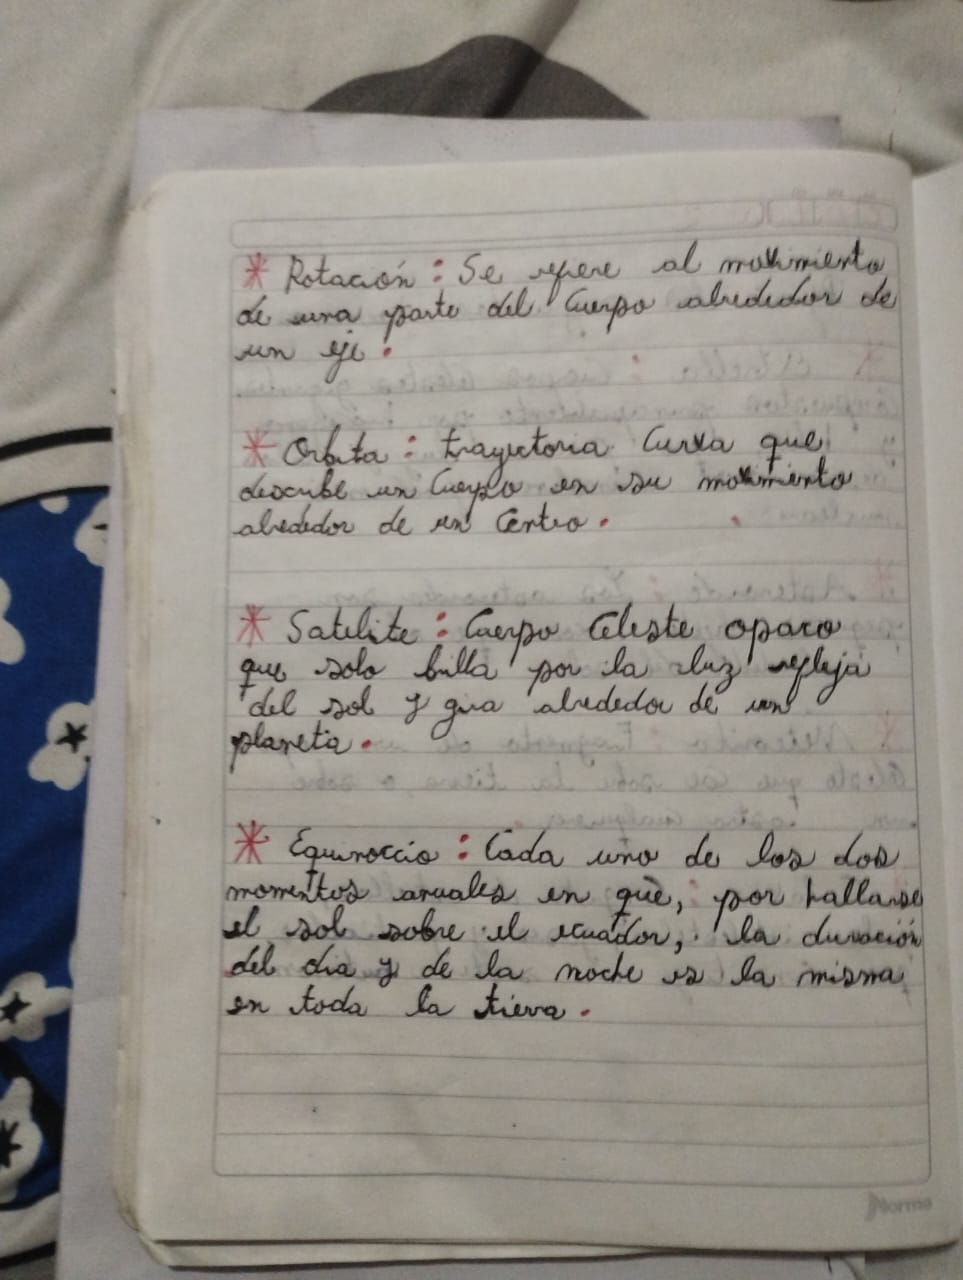 * Rotación : Se refiere al movimiento
de una parte del Cuerpo alrededor de
un eje .
* Orbita : trayectoria Curva que
describe un Cuerpo en su movimiento
alrededor de un Centro .
* Satelite : Cuerpo Celeste opaco
que solo brilla por la luz refleja
del sol y gira alrededor de un
planeta .
* Equinoccio : Cada uno de los dos
momentos anuales en que, por hallarse
el sol sobre el ecuador, la duración
del dia y de la noche es la misma
en toda la tierra .
Norma